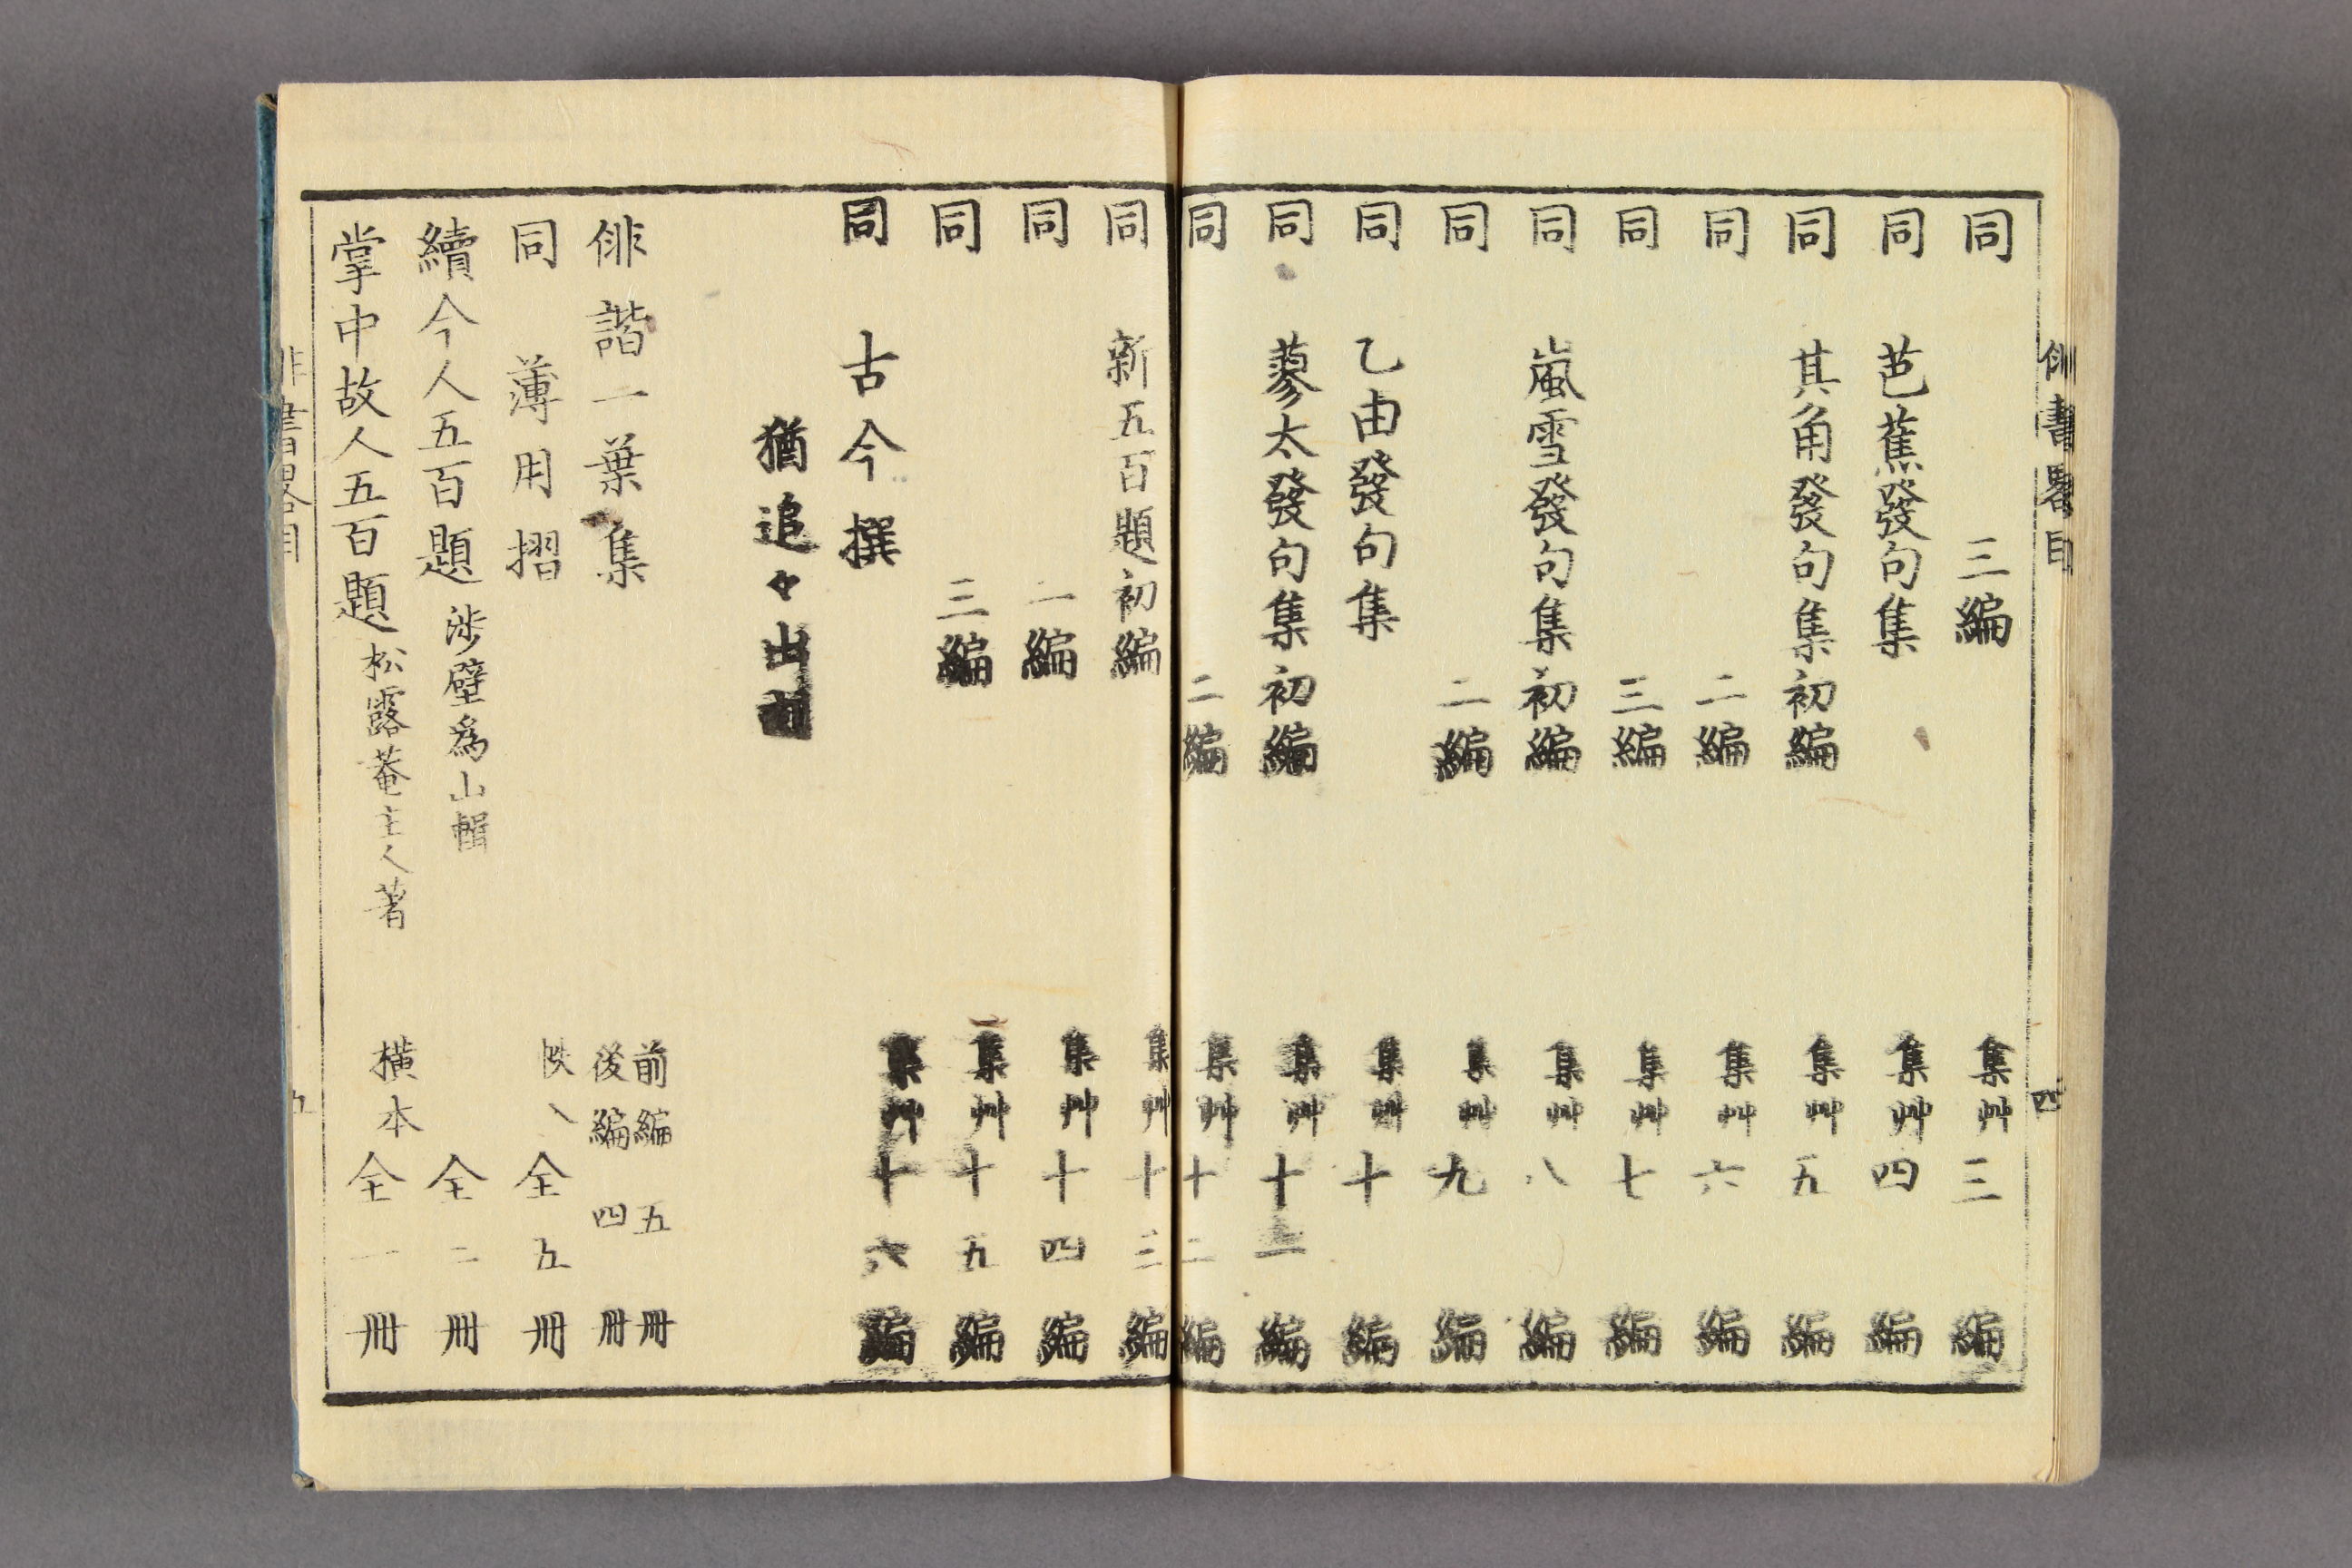 俳書畧目 四
同 三編 集艸三編
同 芭蕉發句集 集艸四編
同 其角發句集初編 集艸五編
同 二編 集艸六編
同 三編 集艸七編
同 嵐雪發句集初編 集艸八編
同 二編 集艸九編
同 乙由發句集 集艸十編
同 蓼太發句集初編 集艸十一編
同 二編 集艸十二編
同 新五百題初編 集艸十三編
同 二編 集艸十四編
同 三編 集艸十五編
同 古今撰 集艸十六編
猶追々出刻
俳諧一葉集 前編五冊 後編四冊
同 薄用摺 帙入全五冊
續今人五百題 渉壁爲山輯 全二冊
掌中故人五百題 松露菴主人著 横本全一冊
俳書畧目 五